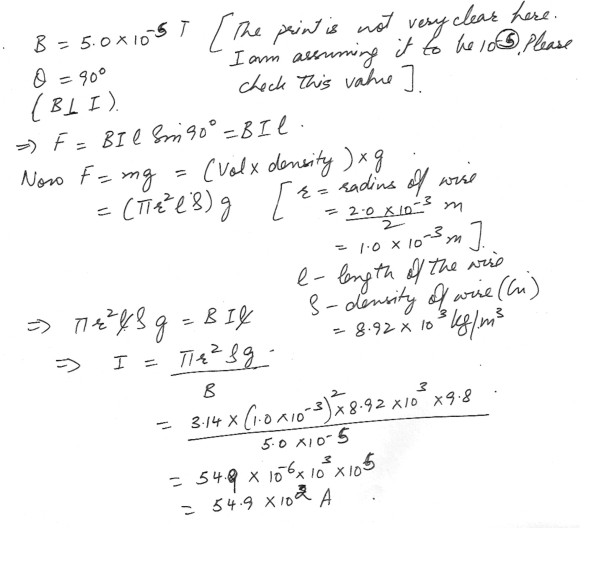 B = 5.0 × 10⁻⁵ T [The print is not very clear here.
I am assuming it to be 10⁻⁵. Please
check this value].
θ = 90°
(B ⊥ I).
⇒ F = BIl Sin 90° = BIl.
Now F = mg = (Vol × density) × g
= (πr²lS) g [r = radius of wire
= 2.0 × 10⁻³ / 2 m
= 1.0 × 10⁻³ m].
l – length of the wire
S – density of wire (Cu)
= 8.92 × 10³ kg/m³
⇒ πr²lSg = BIl
⇒ I = πr²Sg / B
= 3.14 × (1.0 × 10⁻³)² × 8.92 × 10³ × 9.8 / 5.0 × 10⁻⁵
= 54.9 × 10⁻⁶ × 10³ × 10⁵
= 54.9 × 10² A.